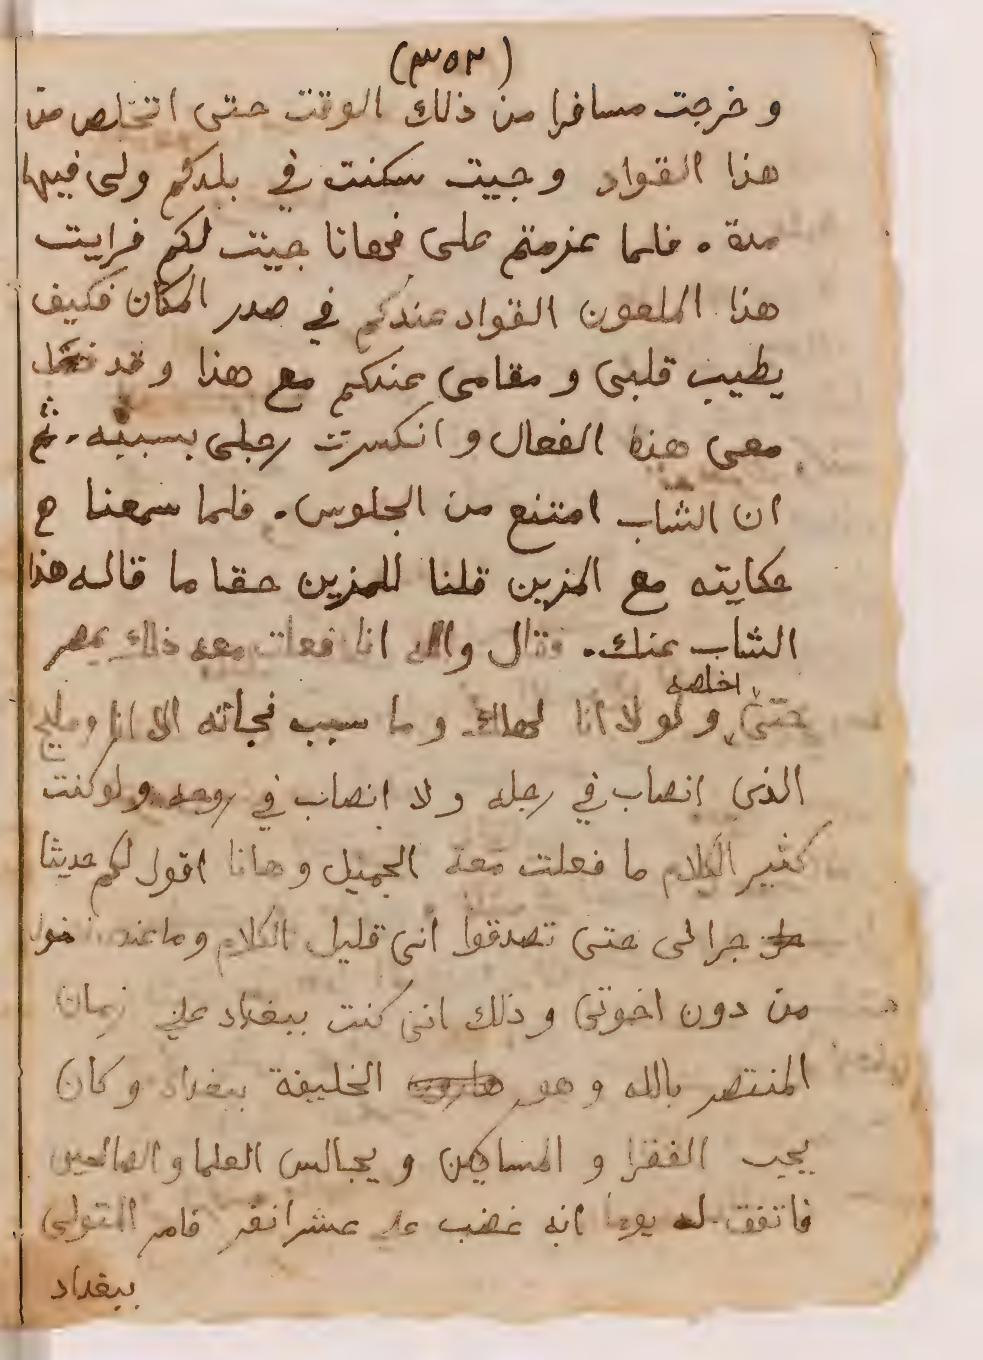 (٣٥٢)
و خرجت مسافرا من ذلك الوقت حتى اتخلص من
هذا القواد وجيت سكنت في بلدكم ولى فيها
مدة . فلما عزمتم على فحانا جيت لكم فرايت
هذا الملعون القواد عندكم في صدر المكان فكيف
يطيب قلبي و مقامى عندكم مع هذا و قد فعل
معى هذه الفعال و انكسرت رجلى بسببه . ثم
ان الشاب امتنع من الجلوس . فلما سمعنا ح
حكايته مع المزين قلنا للمزين حقا ما قاله هذا
الشاب عنك . فقال والله انا فعلت معه ذلك بمصر
حتى اخلصه و لو لا انا لهلك و ما سبب نجاته الا انا ومليح
الذي انصاب في رجله و لا انصاب في روحه ولو كنت
كثير الكلام ما فعلت معه الجميل و هانا اقول لكم حديثا
جرا لى حتى تصدقوا انى قليل الكلام وما عند
من دون اخوتي و ذلك اننى كنت ببغداد على زمان
المنتصر بالله و هو الخليفة ببغداد و كان
يحب الفقرا و المساكين و يجالس العلما و الصالحين
فاتفق له يوما انه غضب على عشرا نفر فامر المتولى
ببغداد